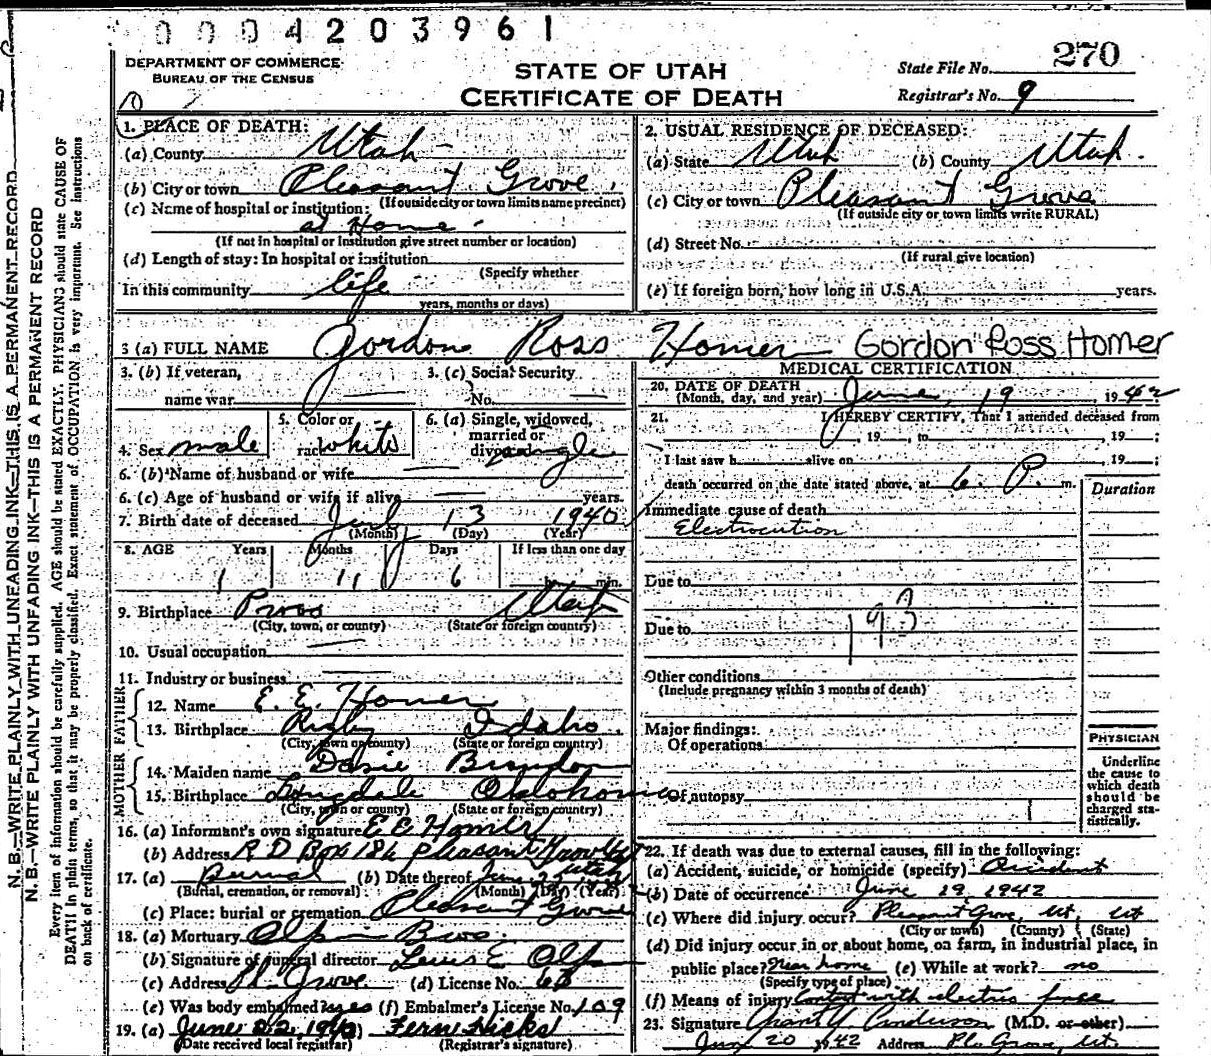 0004203961
DEPARTMENT OF COMMERCE
BUREAU OF THE CENSUS
STATE OF UTAH
CERTIFICATE OF DEATH
State File No. 270
Registrar's No. 9
N. B.—WRITE PLAINLY WITH UNFADING INK—THIS IS A PERMANENT RECORD
N. B.—WRITE PLAINLY WITH UNFADING INK—THIS IS A PERMANENT RECORD
Every item of information should be carefully supplied. AGE should be stated EXACTLY. PHYSICIANS should state CAUSE OF
DEATH in plain terms, so that it may be properly classified. Exact statement of OCCUPATION is very important. See instructions
on back of certificate.
1. PLACE OF DEATH:
(a) County Utah
(b) City or town Pleasant Grove
(If outside city or town limits name precinct)
(c) Name of hospital or institution:
at Home
(If not in hospital or institution give street number or location)
(d) Length of stay: In hospital or institution
(Specify whether
In this community life
years, months or days)
2. USUAL RESIDENCE OF DECEASED:
(a) State Utah (b) County Utah
(c) City or town Pleasant Grove
(If outside city or town limits write RURAL)
(d) Street No.
(If rural give location)
(e) If foreign born, how long in U.S.A. years.
3 (a) FULL NAME Gordon Ross Homer Gordon Ross Homer
3. (b) If veteran,
name war
3. (c) Social Security
No.
4. Sex male
5. Color or
race white
6. (a) Single, widowed,
married or
divorced single
6. (b) Name of husband or wife
6. (c) Age of husband or wife if alive years.
7. Birth date of deceased July 13 1940
(Month) (Day) (Year)
8. AGE Years Months Days If less than one day
1 11 6 hr. min.
9. Birthplace Provo Utah
(City, town, or county) (State or foreign country)
10. Usual occupation
11. Industry or business
FATHER
12. Name E. E. Homer
13. Birthplace Rigby Idaho
(City, town or county) (State or foreign country)
MOTHER
14. Maiden name
15. Birthplace Oklahoma
(City, town or county) (State or foreign country)
16. (a) Informant's own signature E E Homer
(b) Address R D Box 186 Pleasant Grove Utah
17. (a) Burial (b) Date thereof June
(Burial, cremation, or removal) (Month) (Day) (Year)
(c) Place: burial or cremation Pleasant Grove
18. (a) Mortuary Olpin Bros.
(b) Signature of funeral director Olpin
(c) Address Pl. Grove (d) License No. 63
(e) Was body embalmed yes (f) Embalmer's License No. 109
19. (a) June 22, 1942 Fern Hicks
(Date received local registrar) (Registrar's signature)
MEDICAL CERTIFICATION
20. DATE OF DEATH
(Month, day, and year) June 19 1942
21. I HEREBY CERTIFY, That I attended deceased from
, 19 , to , 19 ;
I last saw h alive on , 19 ;
death occurred on the date stated above, at 6 P. m.
Duration
Immediate cause of death
Electrocution
Due to
193
Due to
Other conditions
(Include pregnancy within 3 months of death)
Major findings:
Of operations
Of autopsy
PHYSICIAN
Underline
the cause to
which death
should be
charged sta-
tistically.
22. If death was due to external causes, fill in the following:
(a) Accident, suicide, or homicide (specify) Accident
(b) Date of occurrence June 19, 1942
(c) Where did injury occur? Pleasant Grove, Ut, Ut
(City or town) (County) (State)
(d) Did injury occur in or about home, on farm, in industrial place, in
public place? Near home (e) While at work? no
(Specify type of place)
(f) Means of injury Contact with electric fence
23. Signature Grant Y Anderson (M.D. or other)
June 20 1942 Address Pl. Grove, Ut